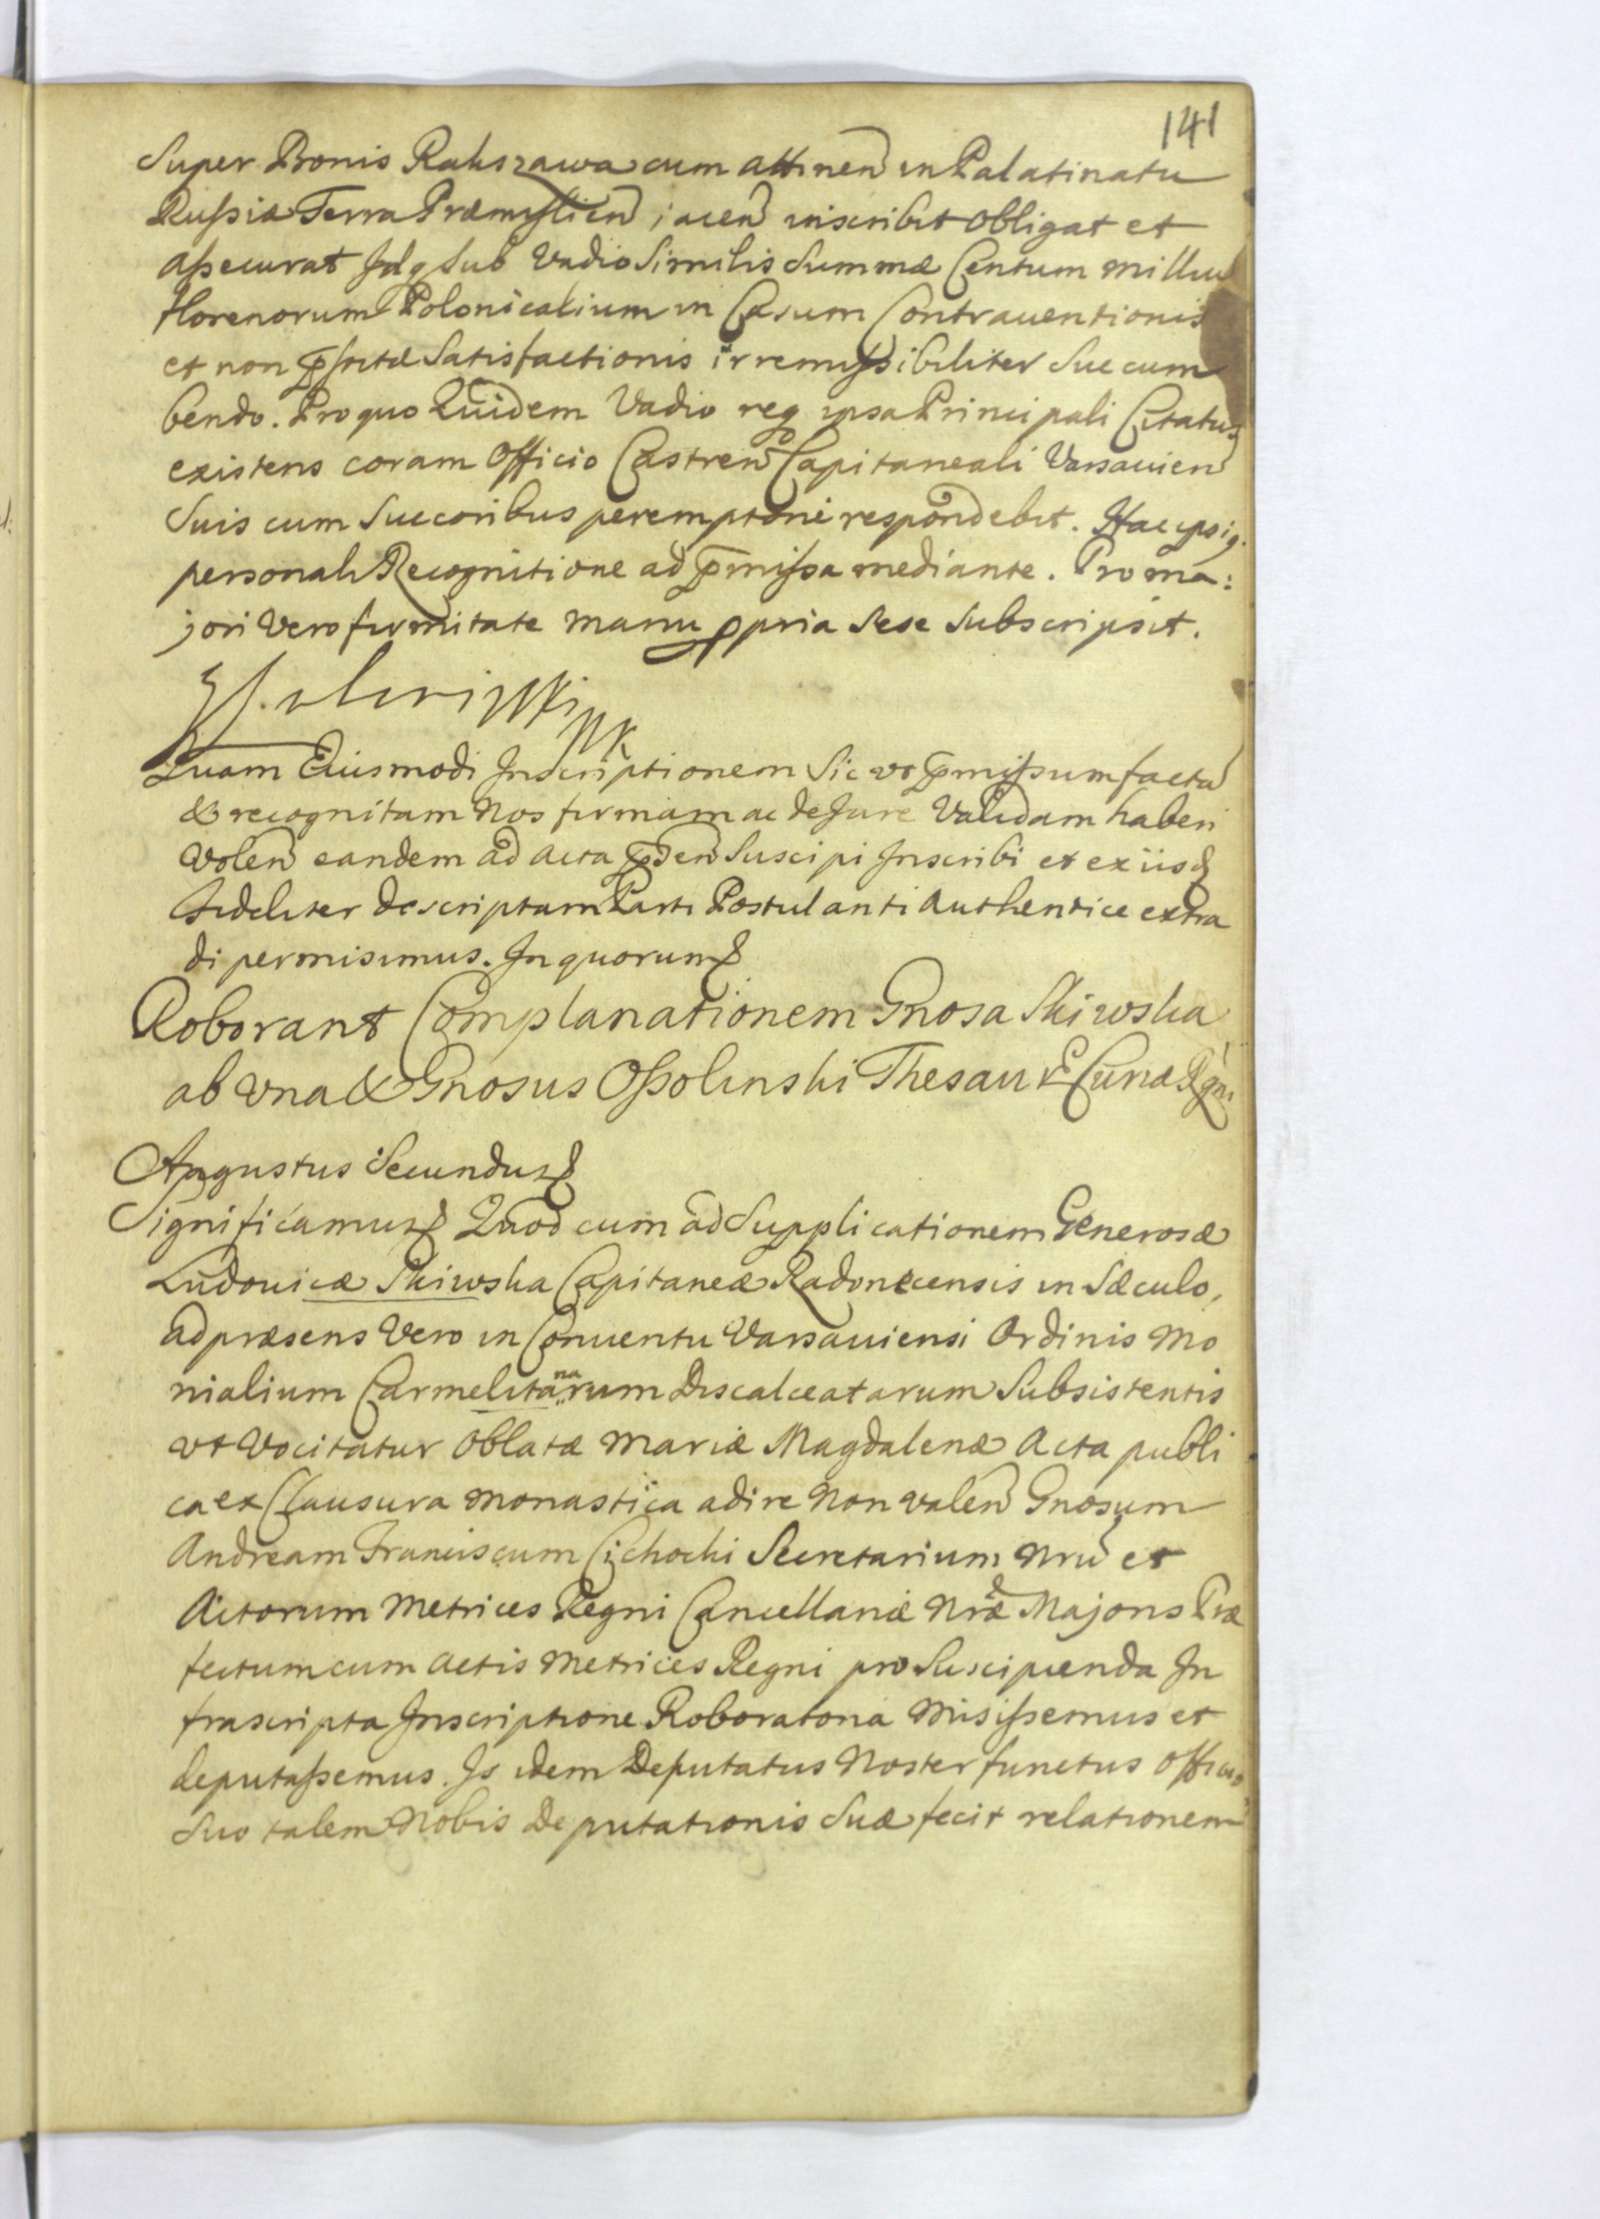 141
Super Bonis Rakszawa cum attinen in Palatinatu
Russiæ Terra Præmyslien jacen inscribit obligat et
assecurat Idq sub Vadio similis summæ Centum milliu
florenorum Polonicalium in Casum Contrauentionis
et non satisfactionis irremissibiliter succum
bendo. Pro quo Quidem Vadio ipsa Principali Citatus
existens coram Officio Castren Capitaneali Varsauien
suis cum succoribus peremptorie respondebit. Hac
personali Recognitione ad pmissa mediante. Pro ma:
jori Vero firmitate manu ppria sese subscripsit.
Quam Eiusmodi Inscriptionem sic vt pmissum facta
& recognitam Nos firmam ac de Jure Validam haberi
volen eandem ad Acta pden suscipi Inscribi et ex iisd
fideliter descriptam Parti Postulanti Authentice extra
di permisimus. In quorum
Roborant Complanationem Gnosa Skiwska
ab vna & Gnosus Ossolinski Thesau Curiæ Rgni
Augustus Secundus
Significamus Quod cum ad Supplicationem Generosæ
Ludouicæ Skiwska Capitaneæ Radonecensis in Sæculo,
ad præsens Vero in Conuentu Varsauiensi Ordinis Mo
nialium Carmelitanarum Discalceatarum Subsistentis
vt Vocitatur Oblatæ Mariæ Magdalenæ Acta publi
ca ex Clausura monastica adire Non valen Gnosum
Andream Franciscum Cichocki Secretarium Nru et
Actorum Metrices Regni Cancellariæ Nræ Majoris Præ
fectum cum Actis Metrices Regni pro Suscipienda In
frascripta Inscriptione Roboratoria misissemus et
deputassemus. Is idem Deputatus Noster functus officio
suo talem Nobis Deputationis suæ fecit relationem